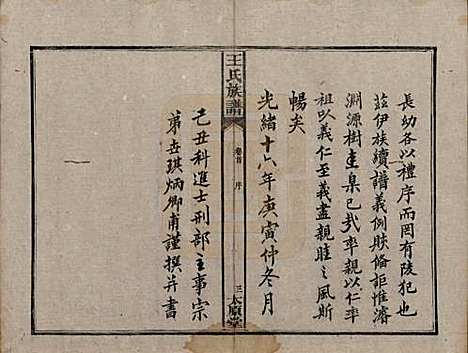 長幼各以禮序而罔有陵犯也
茲伊族續譜義例賅脩詎惟濬
淵源樹圭臬已哉率親以仁率
祖以義仁至義盡親睦之風斯
暢矣
光緒十六年庚寅仲冬月
王氏族譜
卷首 序
三 太原堂
己丑科進士刑部主事宗
弟世琪炳卿甫謹撰并書